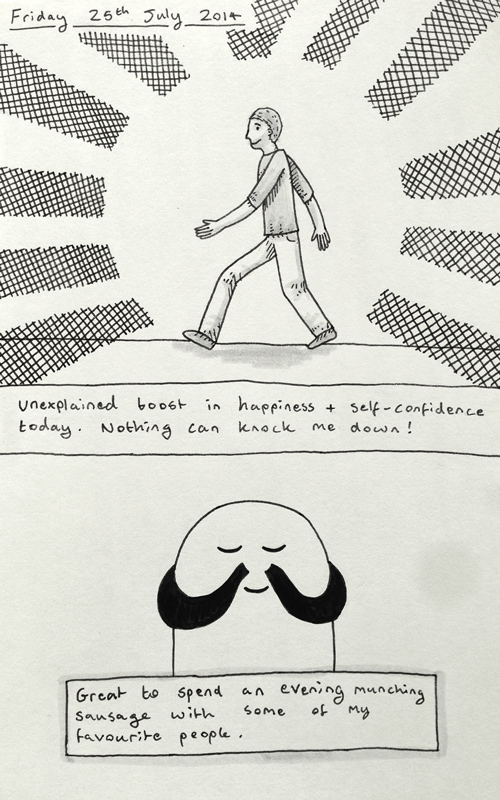 Friday 25th July 2014
Unexplained boost in happiness + self-confidence
today. Nothing can knock me down!
Great to spend an evening munching
sausage with some of my
favourite people.